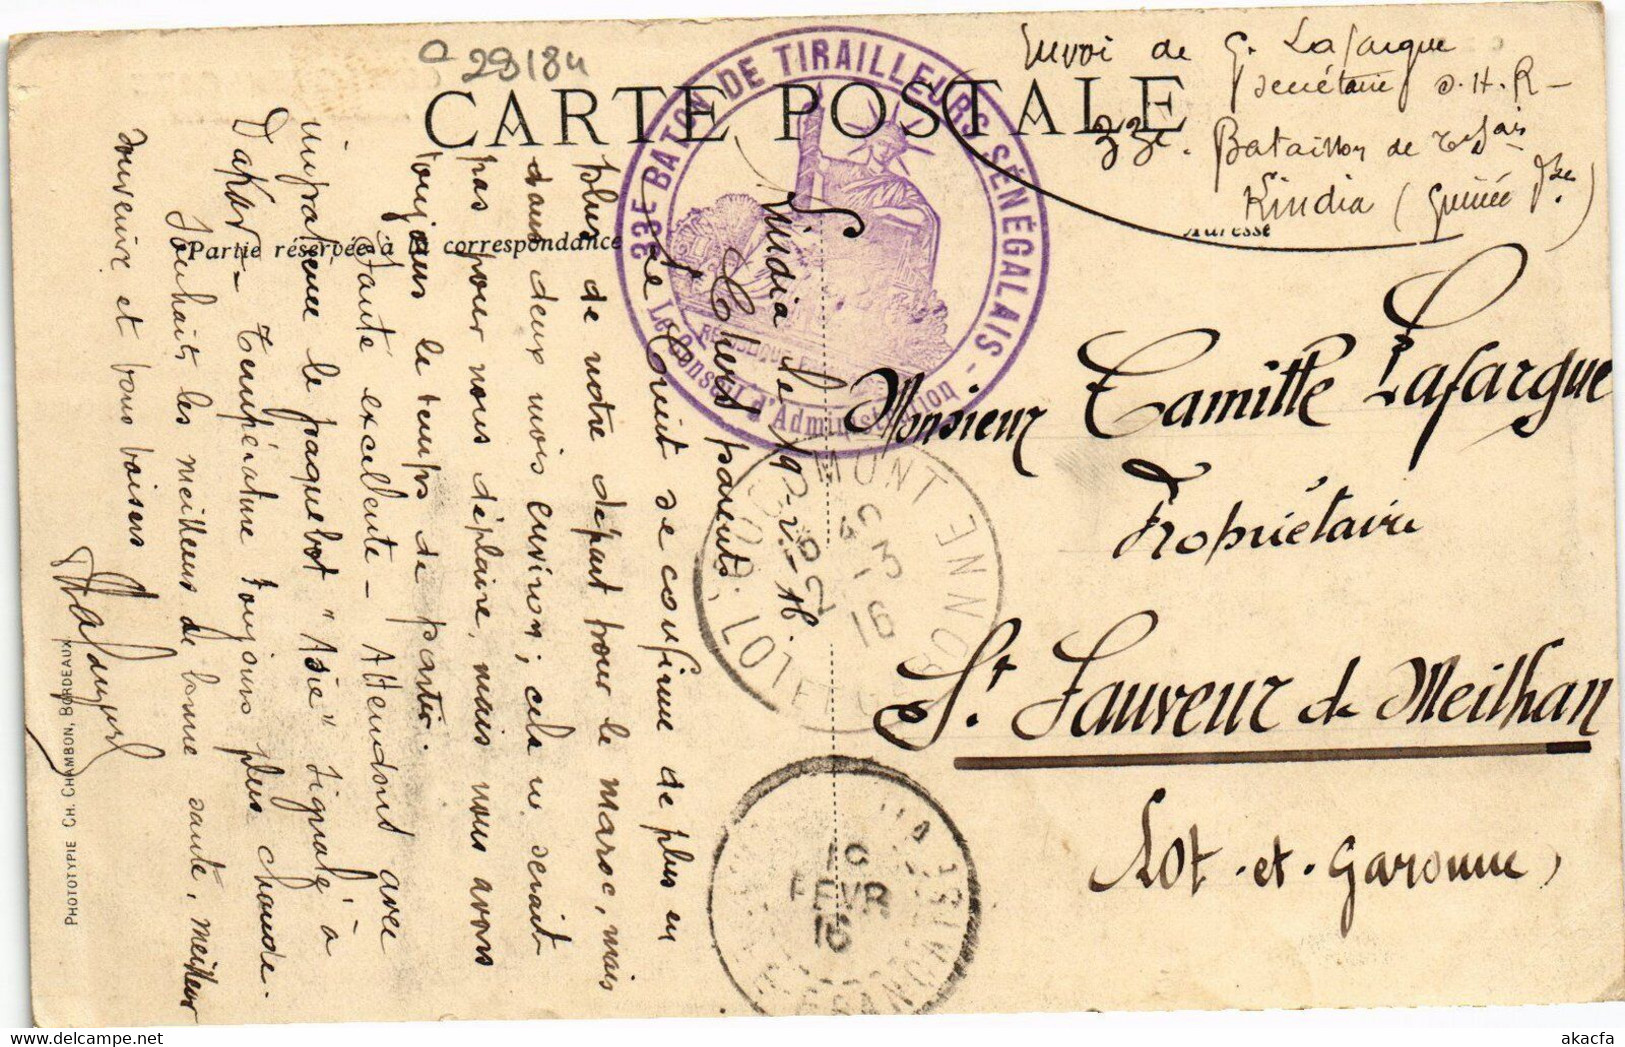 29184
CARTE POSTALE
Envoi de G. Lafargue
Secrétaire O.H.R-
33e. Bataillon de
Kindia (Guinée Fse.)
33E BATON DE TIRAILLEURS SÉNÉGALAIS -
Le Conseil d'Administration
Partie réservée à la correspondance
Adresse
Kindia le 19-2-16.
Chers parents,
Le bruit se confirme de plus en
plus de notre départ pour le Maroc, mais
dans deux mois environ; cela ne serait
pas pour nous déplaire, mais nous avons
toujours le temps de partir.
Santé excellente - Attendons avec
impatience le paquebot "Asie" signalé à
Dakar - Température toujours plus chaude.
Souhaits les meilleurs de bonne santé, meilleur
souvenir et bons baisers
GLafargue
Monsieur Camille Lafargue
Propriétaire
St. Sauveur de Meilhan
Lot-et-Garonne
LOT ET GARONNE
3
16
FEVR
16
PHOTOTYPIE CH. CHAMBON, BORDEAUX
akacfa